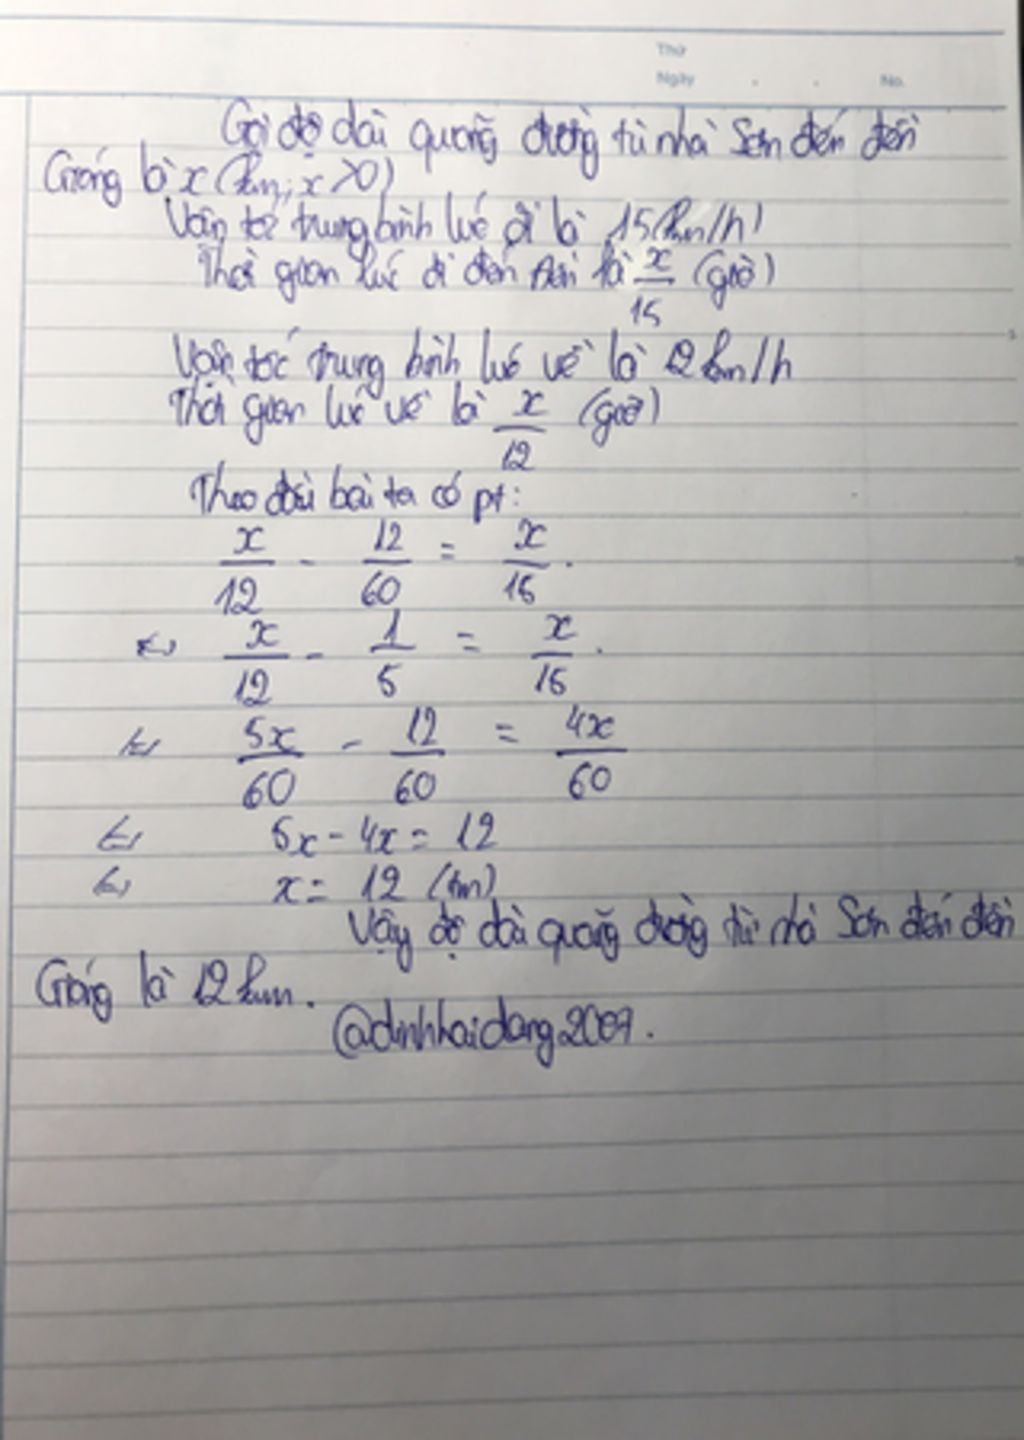 Thứ
Ngày . . No.
Gọi độ dài quãng đường từ nhà Sơn đến đền
Gióng là x (km; x > 0)
Vận tốc trung bình lúc đi là 15 (km/h)
Thời gian lúc đi đến đền là x/15 (giờ)
Vận tốc trung bình lúc về là 12 km/h
Thời gian lúc về là x/12 (giờ)
Theo đầu bài ta có pt:
x/12 - 12/60 = x/15.
⇔ x/12 - 1/5 = x/15.
⇔ 5x/60 - 12/60 = 4x/60
⇔ 5x - 4x = 12
⇔ x = 12 (tm)
Vậy độ dài quãng đường từ nhà Sơn đến đền
Gióng là 12 km.
@dinhhaidang2007.